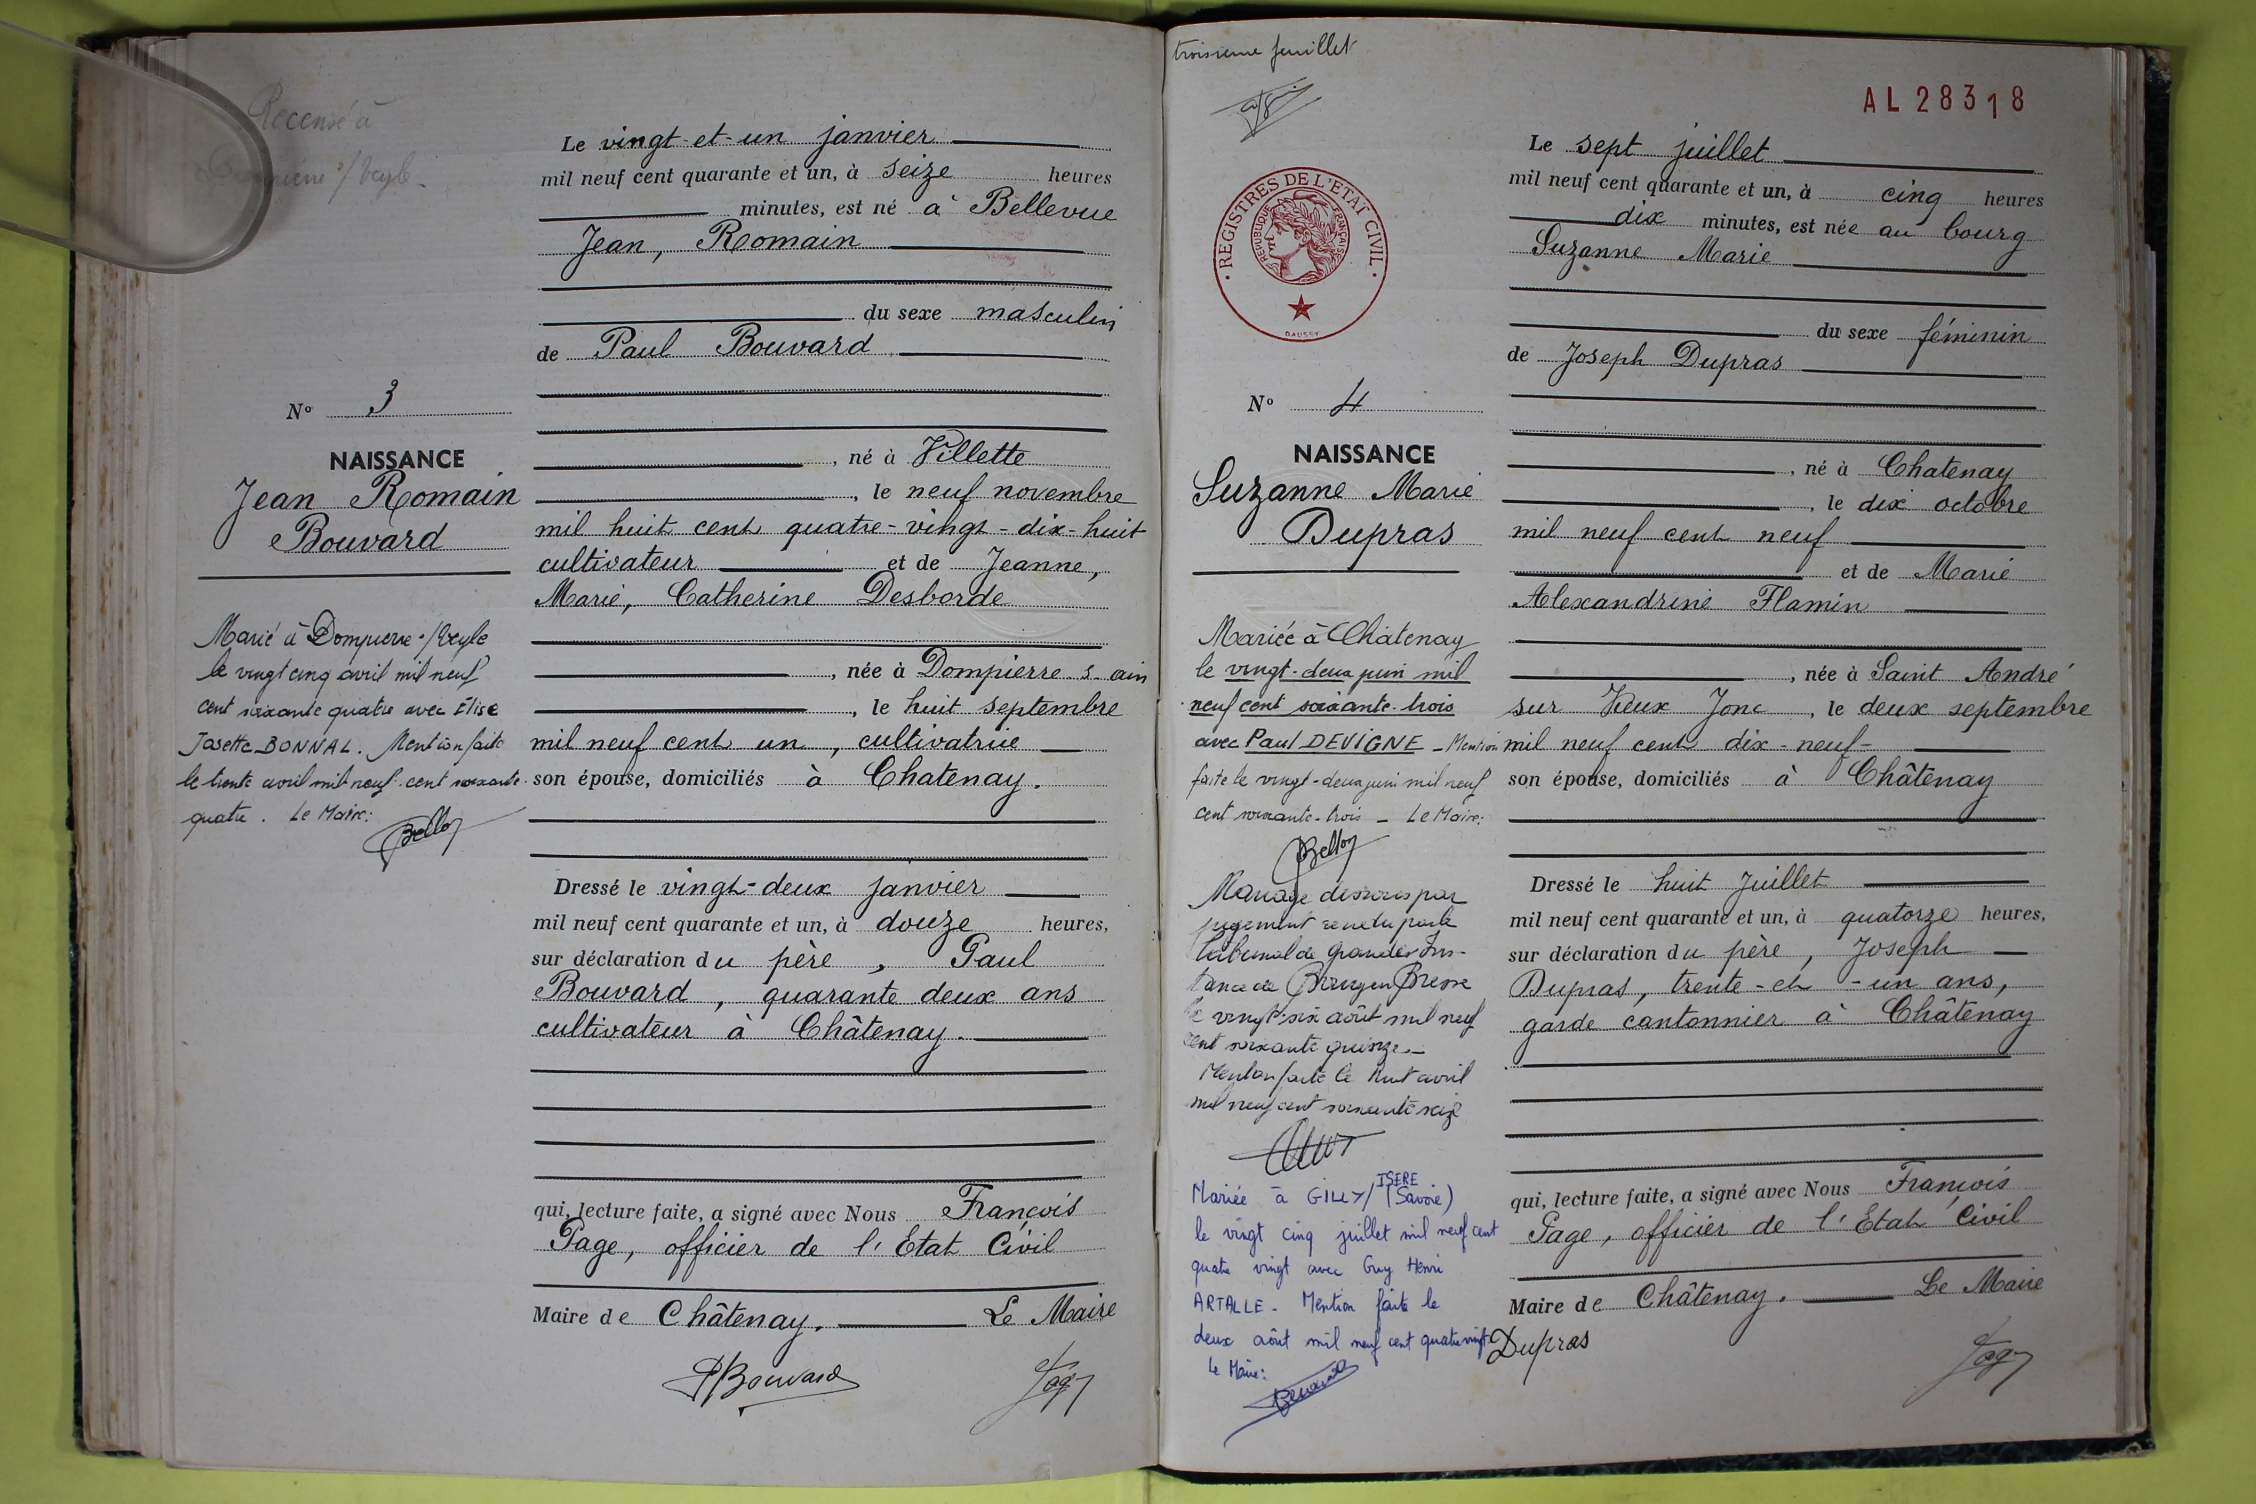 Recensé à
s/ Veyle.
Le vingt-et-un janvier
mil neuf cent quarante et un, à seize heures
minutes, est né à Bellevue
Jean, Romain
du sexe masculin
de Paul Bouvard
N° 3
NAISSANCE
Jean Romain
Bouvard
, né à Villette
, le neuf novembre
mil huit cent quatre-vingt-dix-huit
cultivateur et de Jeanne,
Marie, Catherine Desborde
, née à Dompierre s. ain
, le huit septembre
mil neuf cent un, cultivatrice
son épouse, domiciliés à Chatenay.
Marié à Dompierre s/Veyle
le vingt cinq avril mil neuf
cent soixante quatre avec Élise
Josette BONNAL. Mention faite
le trente avril mil neuf cent soixante-
quatre. Le Maire:
Dressé le vingt-deux janvier
mil neuf cent quarante et un, à douze heures,
sur déclaration du père, Paul
Bouvard, quarante deux ans
cultivateur à Châtenay.
qui, lecture faite, a signé avec Nous François
Page, officier de l'Etat Civil
Maire de Châtenay. Le Maire
PBouvard
troisième feuillet
AL 28318
REGISTRES DE L'ETAT CIVIL
REPUBLIQUE FRANÇAISE
DAUSSY
Le sept juillet
mil neuf cent quarante et un, à cinq heures
dix minutes, est née au bourg
Suzanne Marie
du sexe féminin
de Joseph Dupras
N° 4
NAISSANCE
Suzanne Marie
Dupras
, né à Chatenay
, le dix octobre
mil neuf cent neuf
et de Marie
Alexandrine Flamin
, née à Saint André
sur Vieux Jonc, le deux septembre
mil neuf cent dix-neuf-
son épouse, domiciliés à Châtenay
Mariée à Châtenay
le vingt-deux juin mil
neuf cent soixante-trois
avec Paul DEVIGNE - Mention
faite le vingt-deux juin mil neuf
cent soixante-trois - Le Maire:
Mariage dissous par
jugement rendu par le
tribunal de grande Ins-
tance de Bourg en Bresse
le vingt-six août mil neuf
cent soixante quinze.-
Mention faite le huit avril
mil neuf cent soixante seize
Mariée à GILLY/ISERE (Savoie)
le vingt cinq juillet mil neuf cent
quatre vingt avec Guy Henri
ARTALLE. Mention faite le
deux août mil neuf cent quatre vingt.
Le Maire:
Dressé le huit Juillet
mil neuf cent quarante et un, à quatorze heures,
sur déclaration du père, Joseph
Dupras, trente-et-un ans,
garde cantonnier à Châtenay
qui, lecture faite, a signé avec Nous François
Page, officier de l'Etat Civil
Maire de Châtenay. Le Maire
Dupras